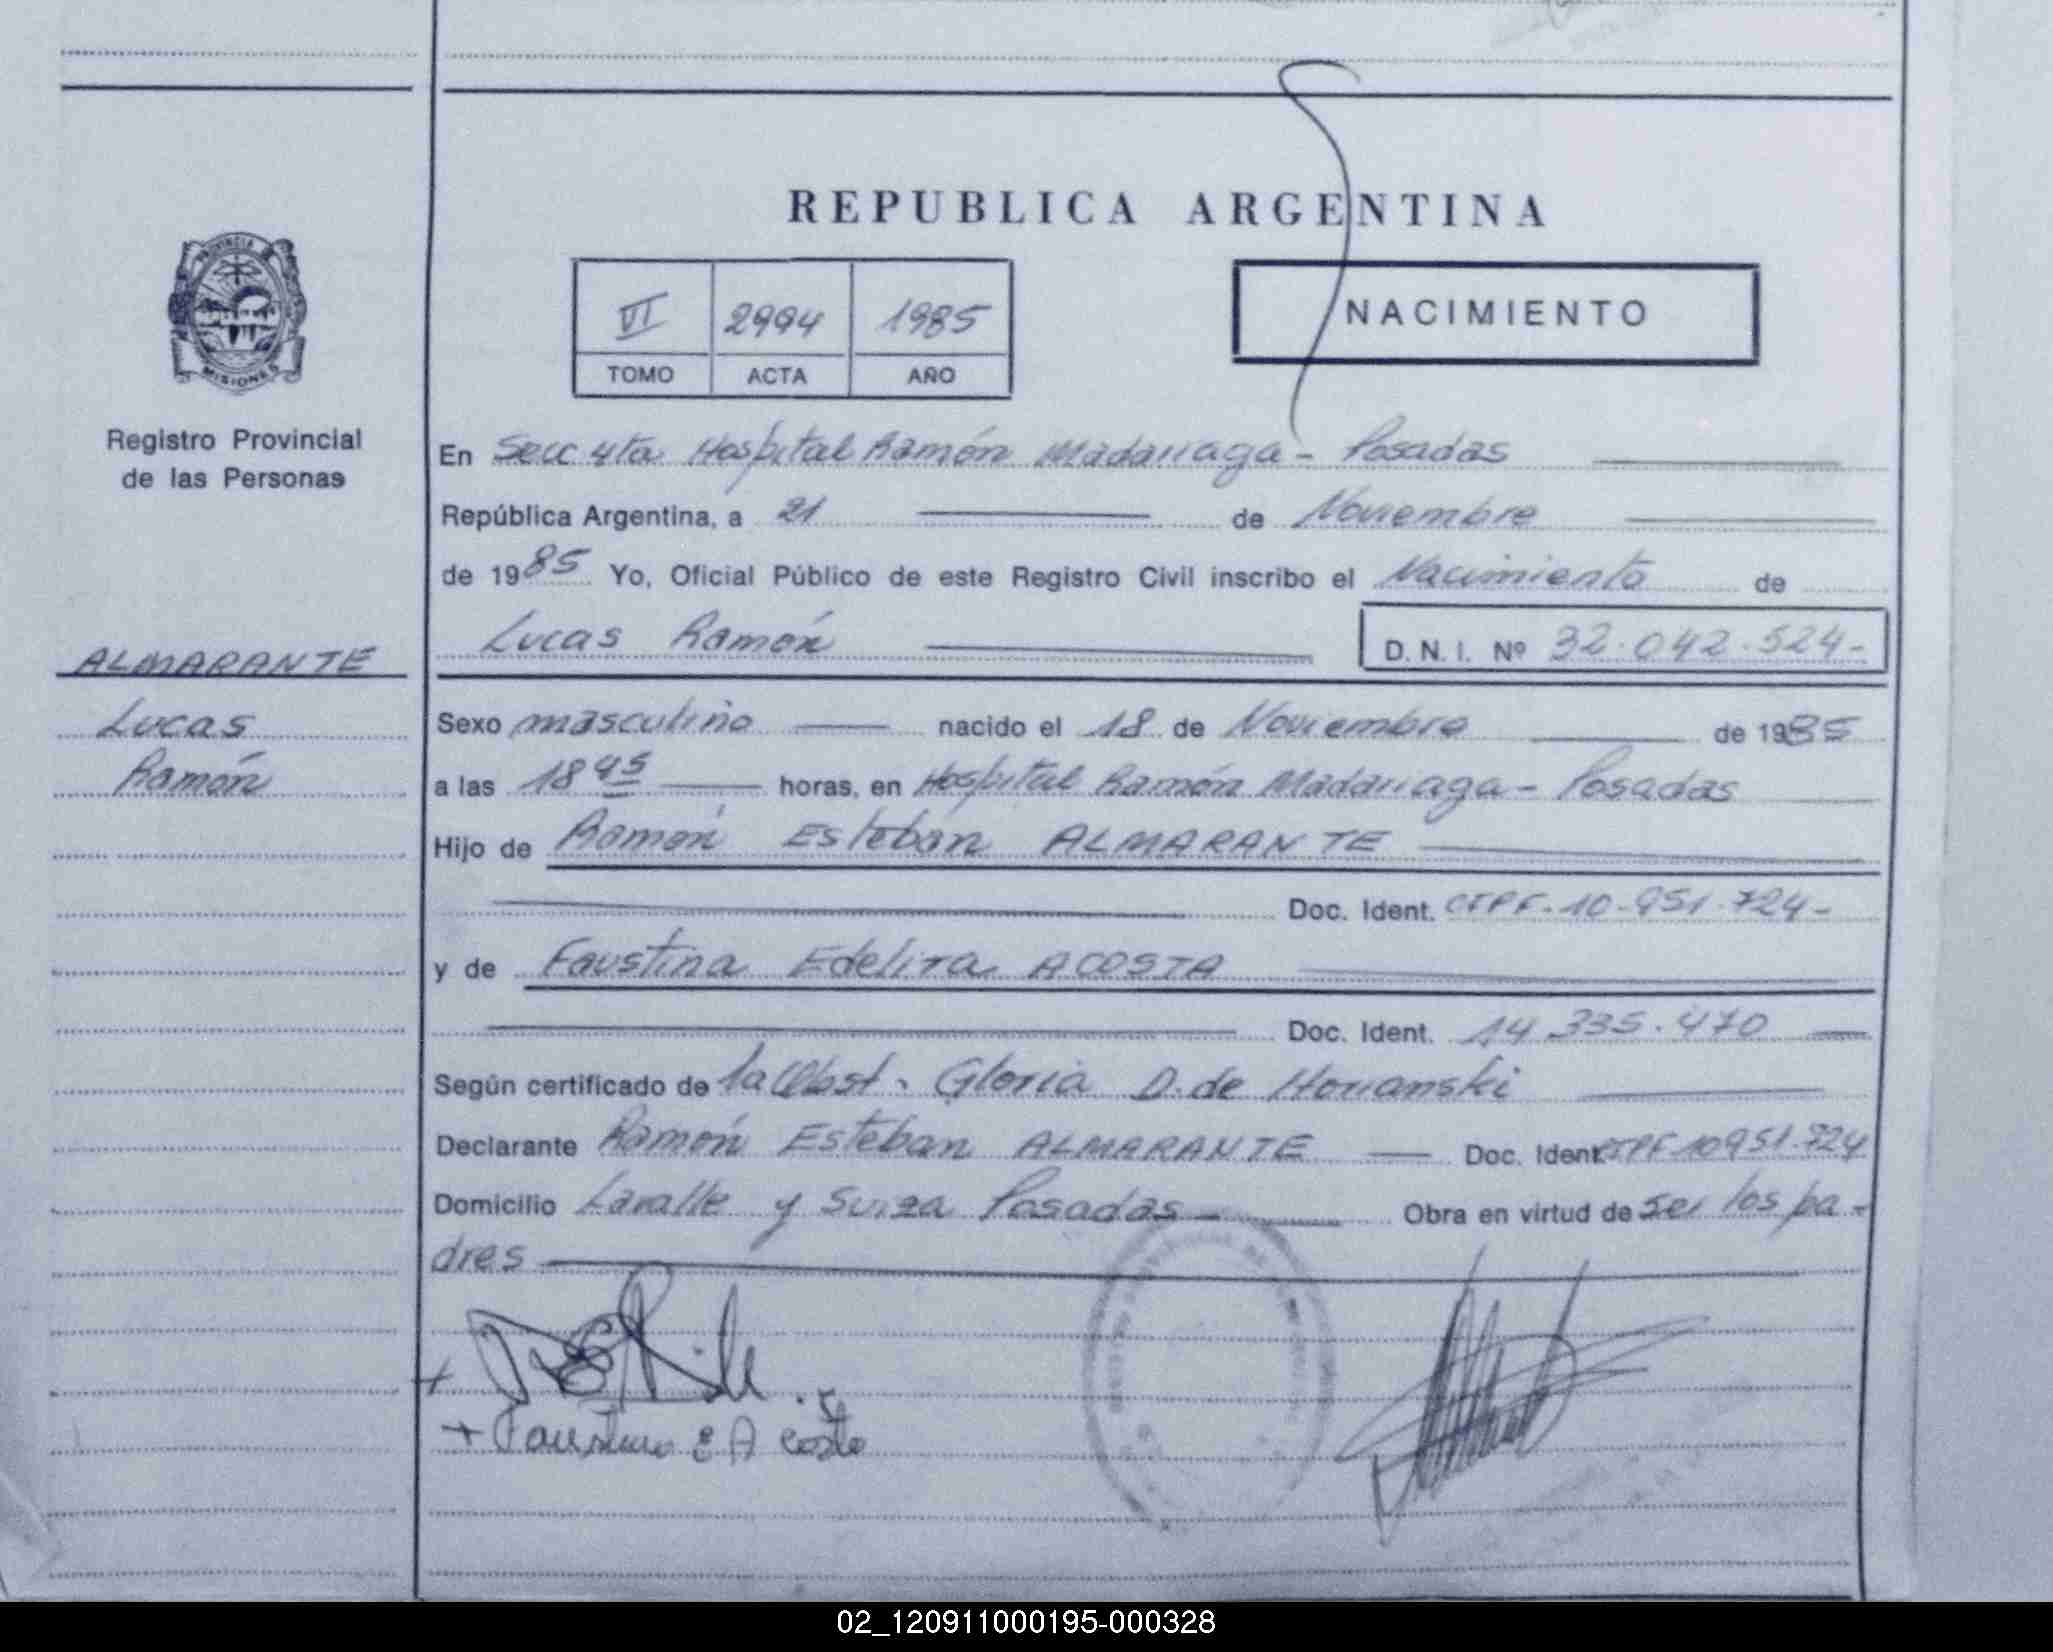 REPUBLICA ARGENTINA
PROVINCIA DE
MISIONES
Registro Provincial
de las Personas
VI 2994 1985
TOMO ACTA AÑO
NACIMIENTO
En Secc 4ta Hospital Ramón Madariaga - Posadas
República Argentina, a 21 de Noviembre
de 1985 Yo, Oficial Público de este Registro Civil inscribo el Nacimiento de
Lucas Ramón D.N.I. Nº 32.042.524-
ALMARANTE
Lucas
Ramón
Sexo masculino nacido el 18 de Noviembre de 1985
a las 18 45 horas, en Hospital Ramón Madariaga - Posadas
Hijo de Ramón Esteban ALMARANTE
Doc. Ident. CIPF-10-951.724-
y de Faustina Edelira ACOSTA
Doc. Ident. 14.335.470
Según certificado de la Obst. Gloria D. de
Declarante Ramón Esteban ALMARANTE Doc. Ident. CIPF 10951.724
Domicilio Lavalle y Suiza Posadas - Obra en virtud de ser los pa-
dres
+ Faustina E A costa
02_120911000195-000328